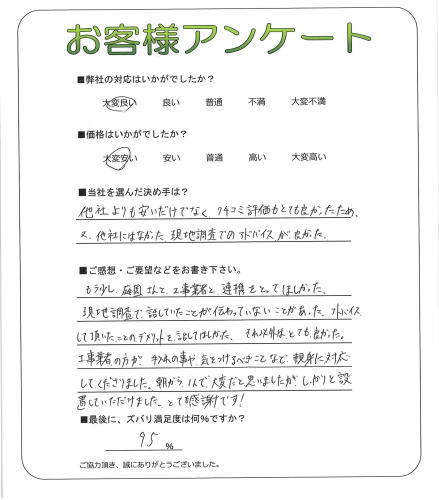 お客様アンケート
■弊社の対応はいかがでしたか?
大変良い 良い 普通 不満 大変不満
■価格はいかがでしたか?
大変安い 安い 普通 高い 大変高い
■当社を選んだ決め手は?
他社よりも安いだけでなく、クチコミ評価もとても良かったため、
又、他社にはなかった現地調査でのアドバイスが良かった。
■ご感想・ご要望などをお書き下さい。
もう少し、庭園さんと、工事業者と連携をとってほしかった、
現地調査で話していたことが伝わっていないことがあった、アドバイス
して頂いたことのデメリットも話してほしかった、それ以外はとても良かった。
工事業者の方が、手入れの事や、気をつけるべきことなど、親身に対応
してくださりました。朝から1人で大変だと思いましたが、しっかりと設
置していただけました。とても感謝です!
■最後に、ズバリ満足度は何%ですか?
95 %
ご協力頂き、誠にありがとうございました。